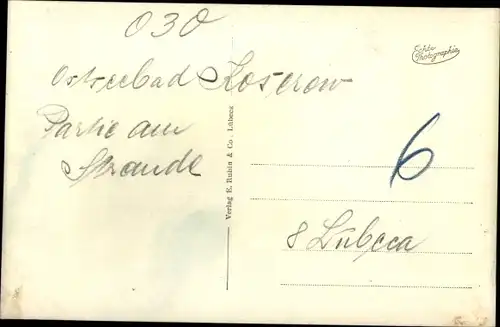 030
Echte
Photographie
Ostseebad Koserow
Partie am
Strande
Verlag E. Rubin & Co., Lübeck
6
8 Lübeca